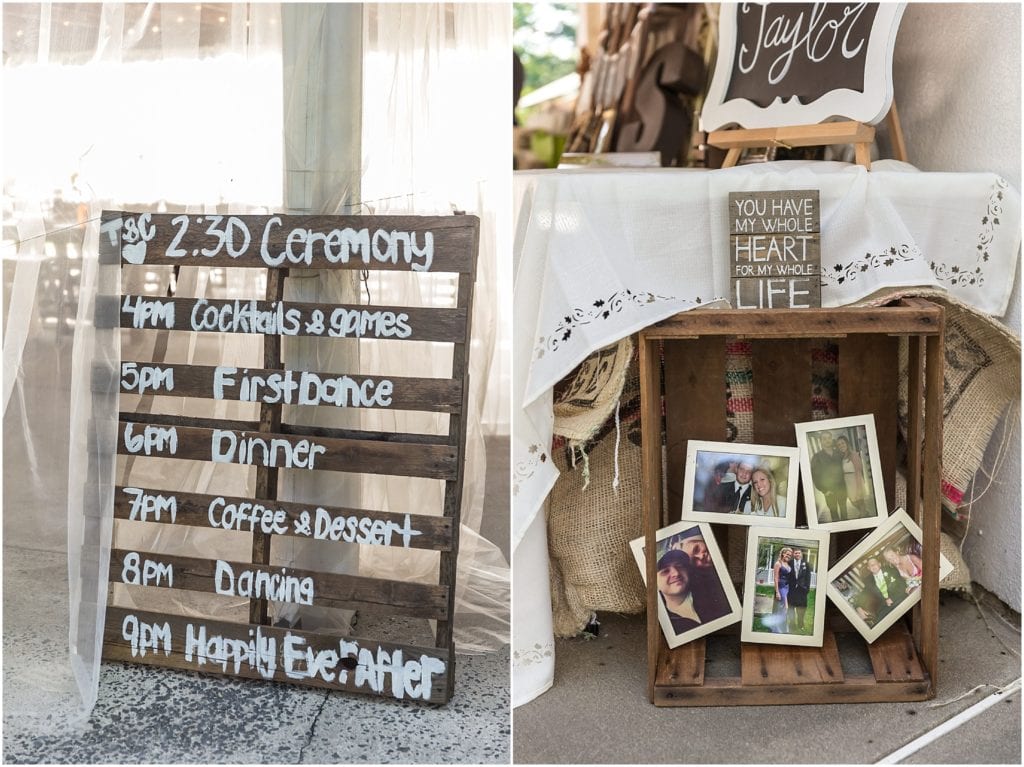 T&C 2:30 Ceremony
4PM Cocktails & games
5PM First Dance
6PM Dinner
7PM Coffee & Dessert
8PM Dancing
9PM Happily Ever After
Taylor
YOU HAVE
MY WHOLE
HEART
FOR MY WHOLE
LIFE